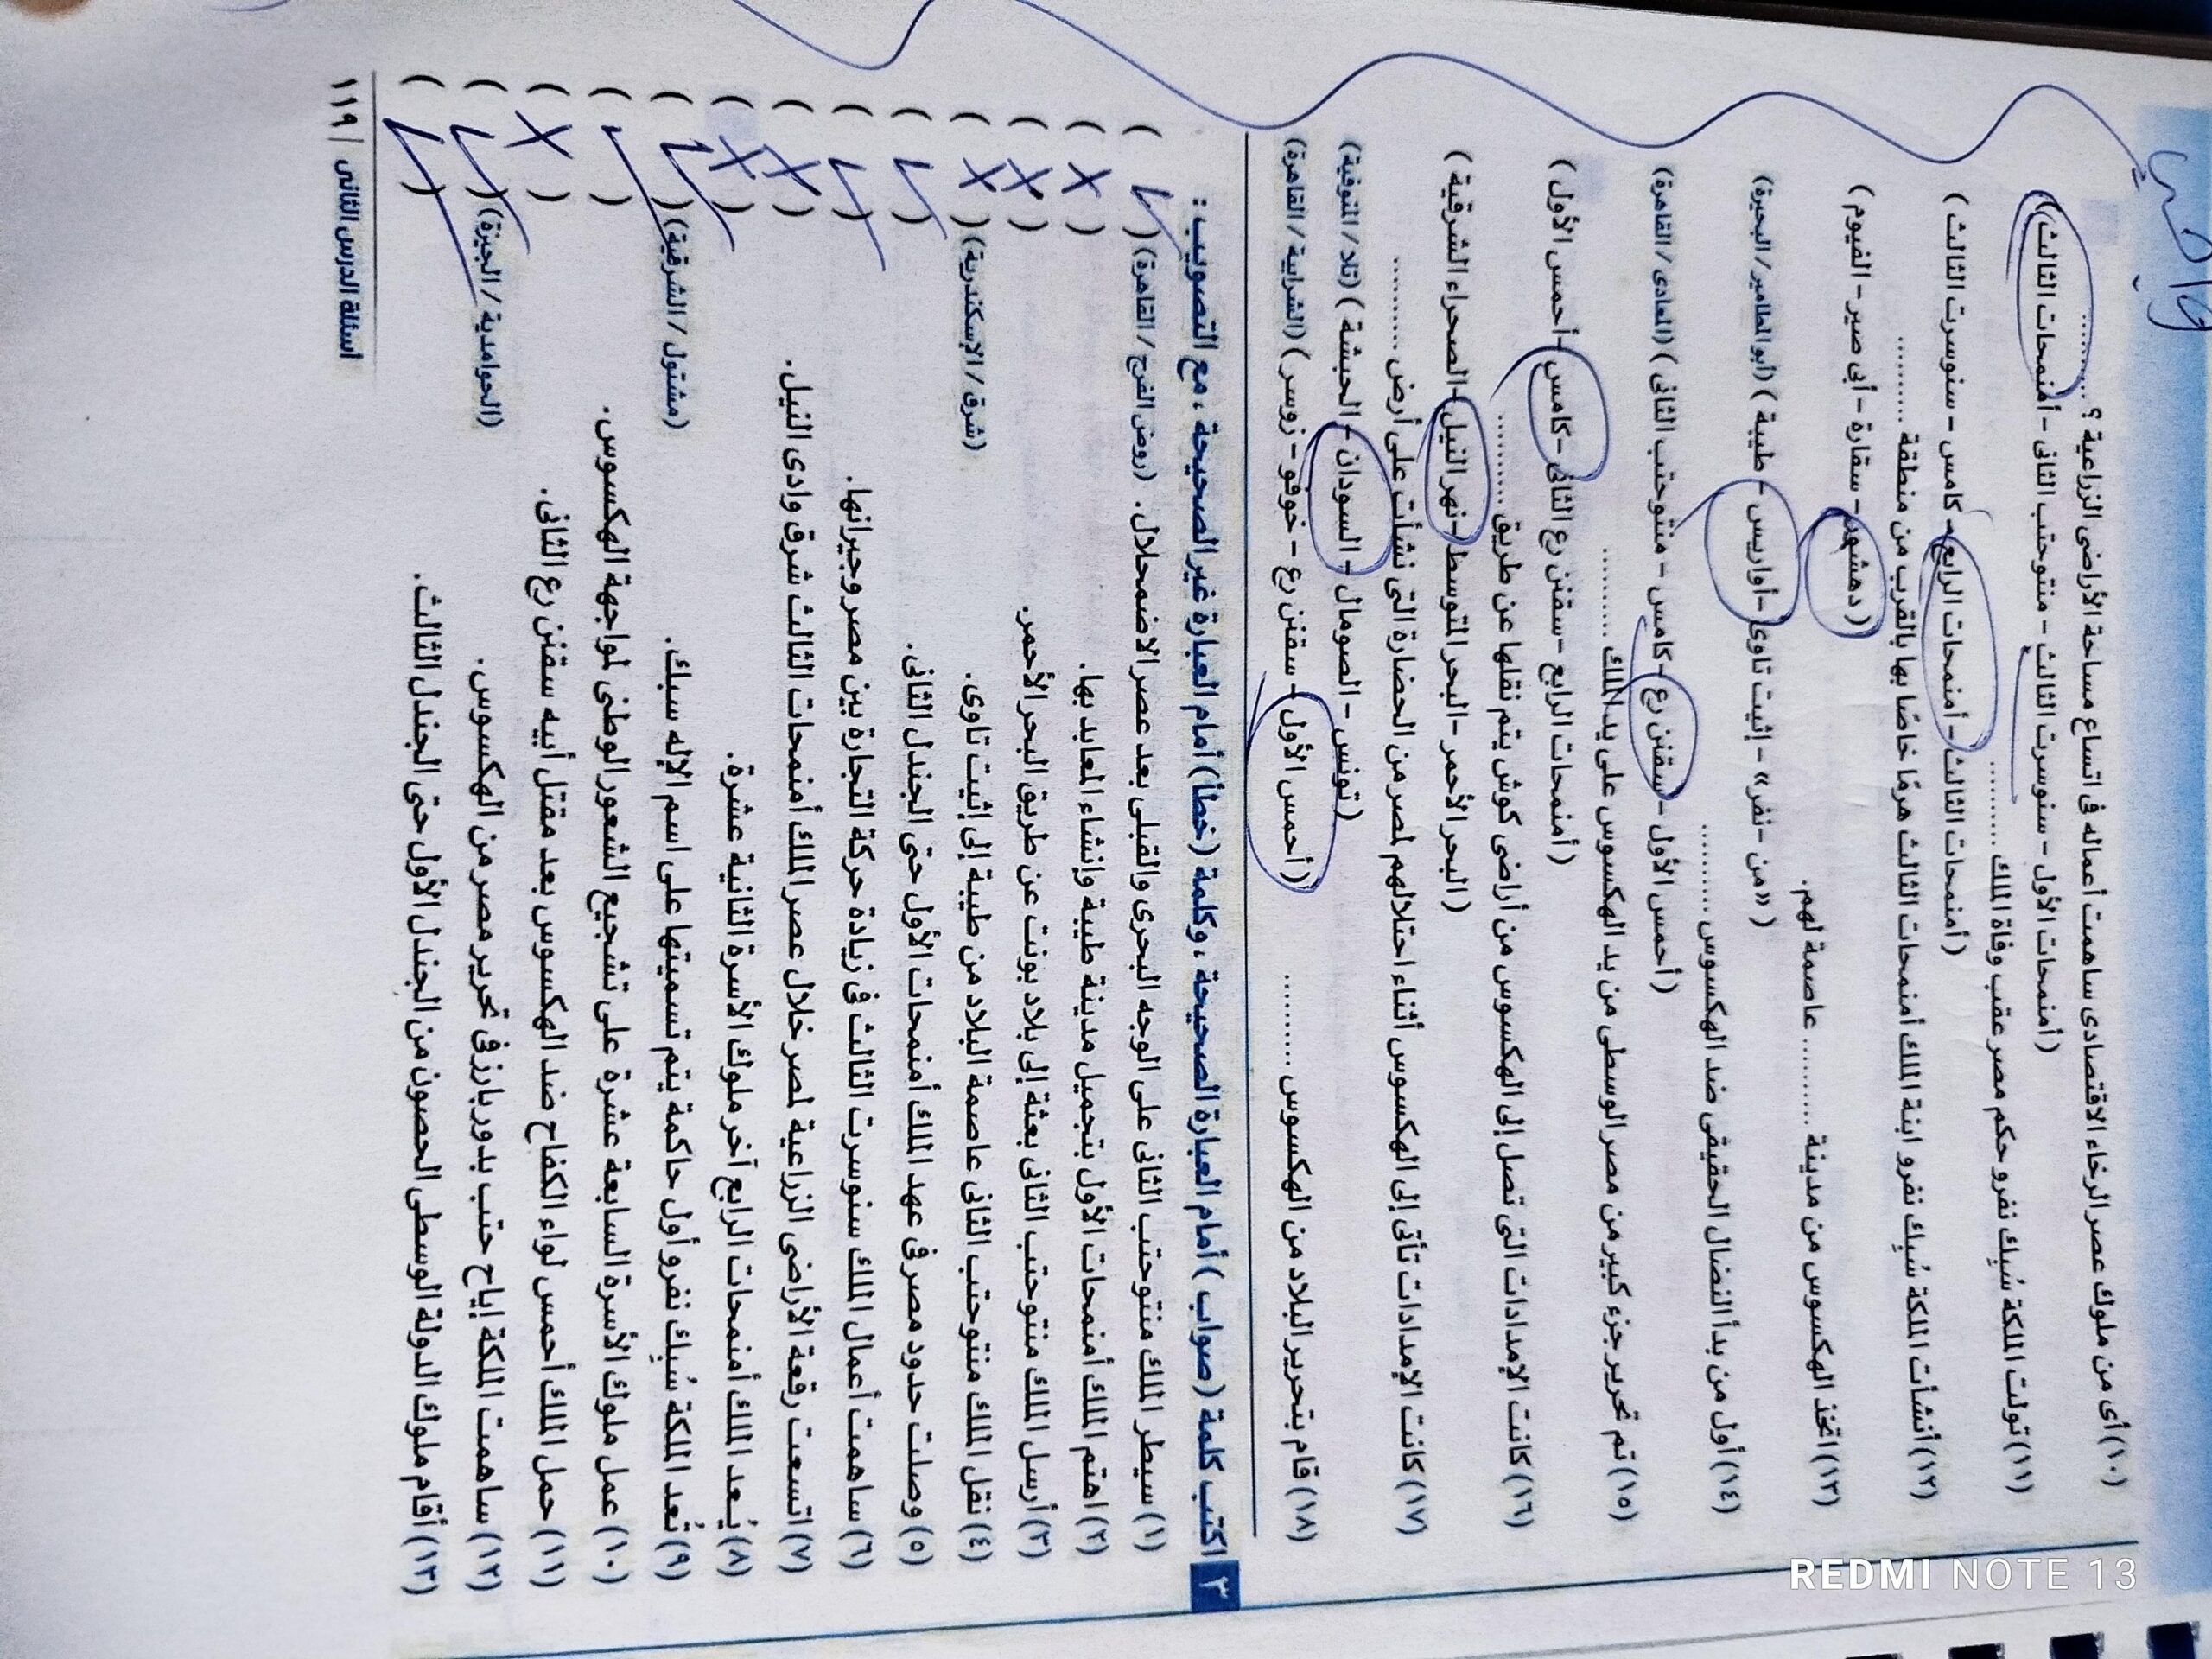 (١٠) أى من ملوك عصر الرخاء الاقتصادى ساهمت أعماله فى اتساع مساحة الأراضى الزراعية ؟ ..........
(أمنمحات الأول - سنوسرت الثالث - منتوحتب الثانى - أمنمحات الثالث)
(١١) تولت الملكة سُبك نفرو حكم مصر عقب وفاة الملك ..........
(أمنمحات الثالث - أمنمحات الرابع - كامس - سنوسرت الثالث)
(١٢) أنشأت الملكة سُبك نفرو ابنة الملك أمنمحات الثالث هرمًا خاصًا بها بالقرب من منطقة ..........
(دهشور - سقارة - أبى صير - الفيوم)
(١٣) اتخذ الهكسوس من مدينة .......... عاصمة لهم.
(«من - نفر» - إثيت تاوى - أواريس - طيبة) (أبو المطامير / البحيرة)
(١٤) أول من بدأ النضال الحقيقى ضد الهكسوس ..........
(أحمس الأول - سقنن رع - كامس - منتوحتب الثانى) (المعادى / القاهرة)
(١٥) تم تحرير جزء كبير من مصر الوسطى من يد الهكسوس على يد الملك ..........
(أمنمحات الرابع - سقنن رع الثانى - كامس - أحمس الأول)
(١٦) كانت الإمدادات التى تصل إلى الهكسوس من أراضى كوش يتم نقلها عن طريق ..........
(البحر الأحمر - البحر المتوسط - نهر النيل - الصحراء الشرقية)
(١٧) كانت الإمدادات تأتى إلى الهكسوس أثناء احتلالهم لمصر من الحضارة التى نشأت على أرض ..........
(تونس - الصومال - السودان - الحبشة) (تلا / المنوفية)
(١٨) قام بتحرير البلاد من الهكسوس ..........
(أحمس الأول - سقنن رع - خوفو - زوسر) (الشرابية / القاهرة)
٣ اكتب كلمة (صواب) أمام العبارة الصحيحة، وكلمة (خطأ) أمام العبارة غير الصحيحة، مع التصويب :
(١) سيطر الملك منتوحتب الثانى على الوجه البحرى والقبلى بعد عصر الاضمحلال. (روض الفرج / القاهرة) (✓)
(٢) اهتم الملك أمنمحات الأول بتجميل مدينة طيبة وإنشاء المعابد بها. (×)
(٣) أرسل الملك منتوحتب الثانى بعثة إلى بلاد بونت عن طريق البحر الأحمر. (×)
(٤) نقل الملك منتوحتب الثانى عاصمة البلاد من طيبة إلى إثيت تاوى. (شرق / الإسكندرية) (×)
(٥) وصلت حدود مصر فى عهد الملك أمنمحات الأول حتى الجندل الثانى. (✓)
(٦) ساهمت أعمال الملك سنوسرت الثالث فى زيادة حركة التجارة بين مصر وجيرانها. (✓)
(٧) اتسعت رقعة الأراضى الزراعية لمصر خلال عصر الملك أمنمحات الثالث شرق وادى النيل. (×)
(٨) يُعد الملك أمنمحات الرابع آخر ملوك الأسرة الثانية عشرة. (×)
(٩) تُعد الملكة سُبك نفرو أول حاكمة يتم تسميتها على اسم الإله سبك. (مشتول / الشرقية) (✓)
(١٠) عمل ملوك الأسرة السابعة عشرة على تشجيع الشعور الوطنى لمواجهة الهكسوس. (✓)
(١١) حمل الملك أحمس لواء الكفاح ضد الهكسوس بعد مقتل أبيه سقنن رع الثانى. (×)
(١٢) ساهمت الملكة إياح حتب بدور بارز فى تحرير مصر من الهكسوس. (الحوامدية / الجيزة) (✓)
(١٣) أقام ملوك الدولة الوسطى الحصون من الجندل الأول حتى الجندل الثالث. (✓)
أسئلة الدرس الثانى | ١١٩
REDMI NOTE 13